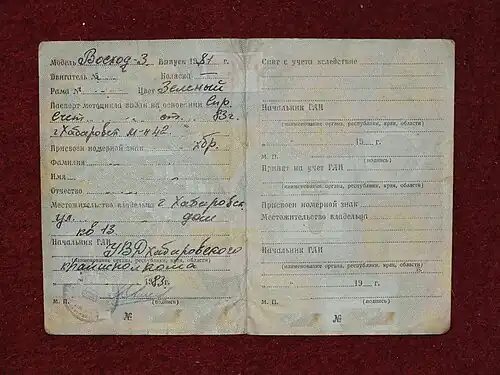 Модель Восход-3 Выпуск 1981 г.
Двигатель № Коляска —
Рама № Цвет Зеленый
Паспорт мотоцикла выдан на основании Спр.
Счет от 83г.
г. Хабаровск м-н 42
Присвоен номерной знак хбр.
Фамилия
Имя
Отчество
Местожительство владельца г. Хабаровск
ул. дом
кв 13
Начальник ГАИ УВД Хабаровского
(наименование органа, республики, края, области)
крайисполкома
1983 г.
М. П. (подпись)
№
Снят с учета вследствие
Начальник ГАИ
(наименование органа, республики, края, области)
" " 19 г.
М. П. (подпись)
Принят на учет ГАИ
(наименование органа, республики, края, области)
Присвоен номерной знак
Местожительство владельца
Начальник ГАИ
(наименование органа, республики, края, области)
" " 19 г.
М. П. (подпись)
№